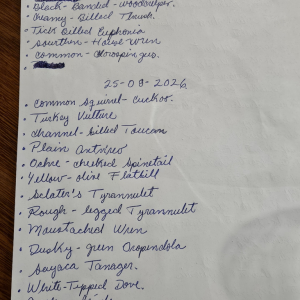 • Black-Banded-woodcreeper.
• Creamy-Billed Thrush.
• Tick Billed Euphonia
• Sourthern-House Wren
• common-chlorospingus.
•
25-08-2026
• common squirrel-cuckoo.
• Turkey Vulture
• channel-billed Toucan
• Plain Antvireo
• Ochre-cheeked Spinetail
• Yellow-olive Flatbill
• Sclater's Tyrannulet
• Rough-legged Tyrannulet
• Moustached Wren
• Dusky-green Oropendola
• Sayaca Tanager.
• White-Tipped Dove.